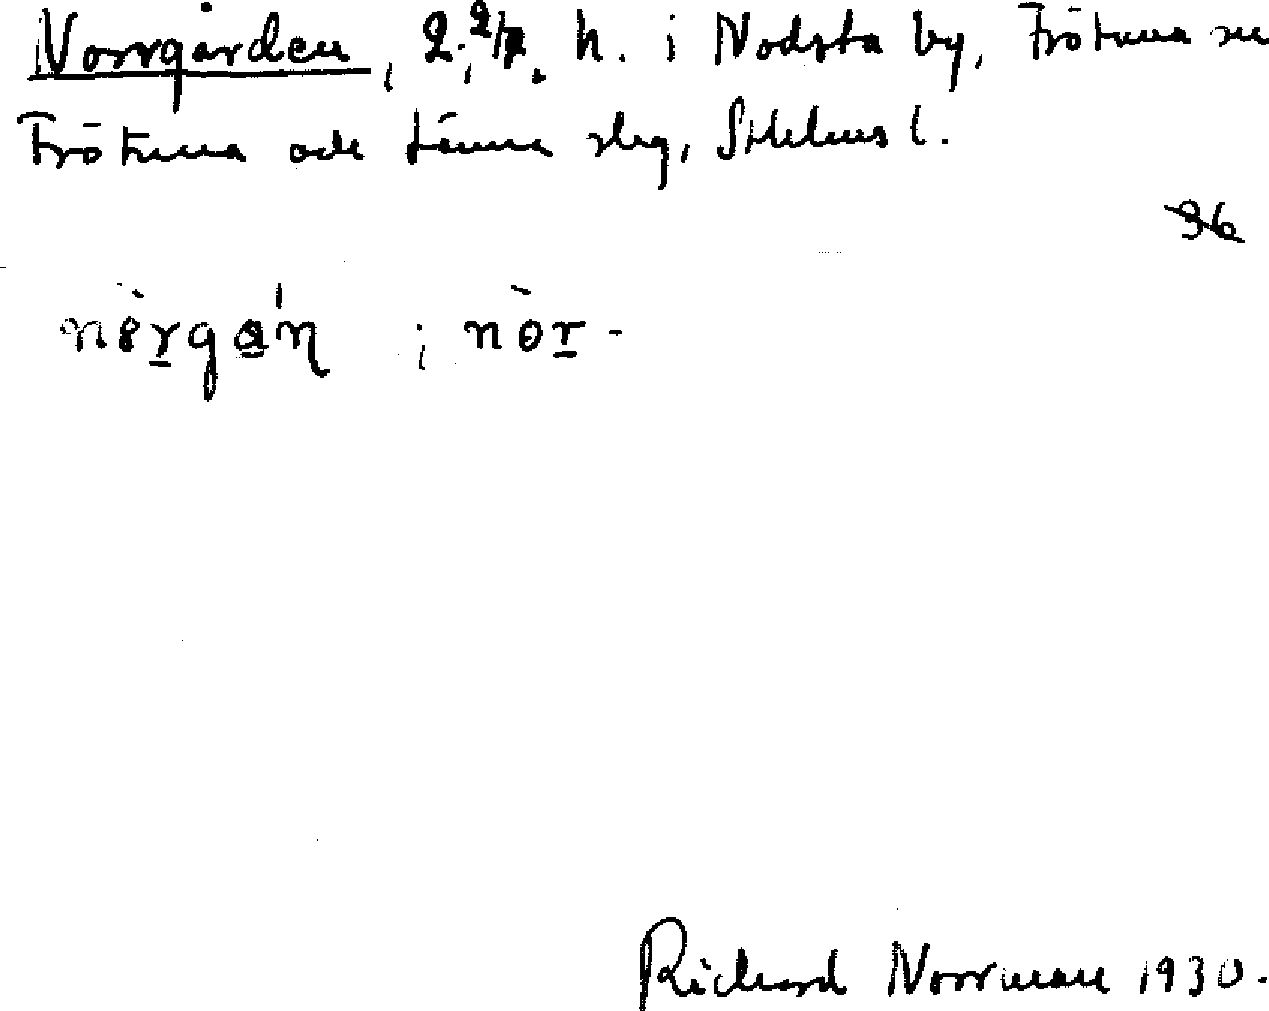 Norrgården, 2. 2/7. h. i Nodsta by, Frötuna sn
Frötuna och Länna slag, Sthlms l.
36
nòrgɑ́ɳ ; nòr-
Richard Norrman 1930.